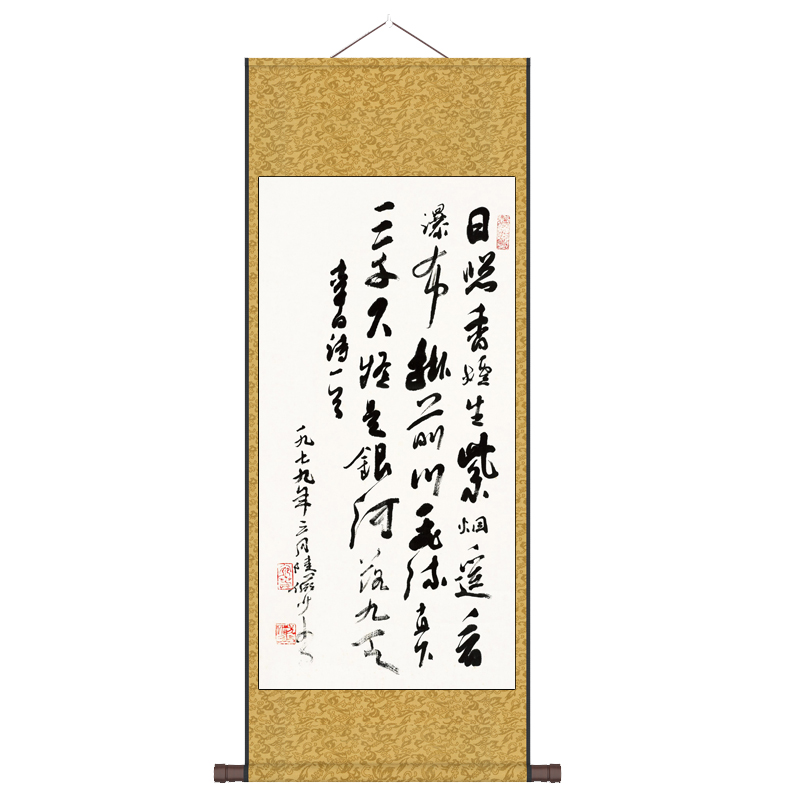 日照香爐生紫烟遥看
瀑布掛前川飛流直下
三千尺疑是銀河落九天
李白詩一首
一九七九年三月陸儼少